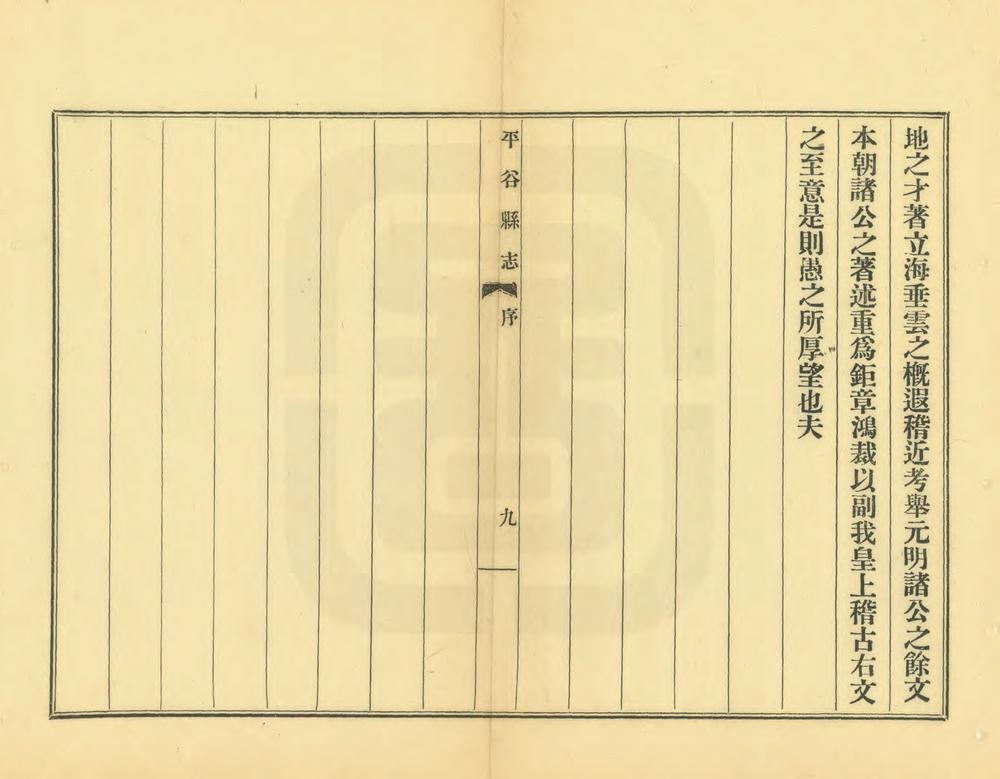 地之才著立海垂雲之概遐稽近考舉元明諸公之餘文
本朝諸公之著述重爲鉅章鴻裁以副我皇上稽古右文
之至意是則愚之所厚望也夫
平谷縣志
序
九